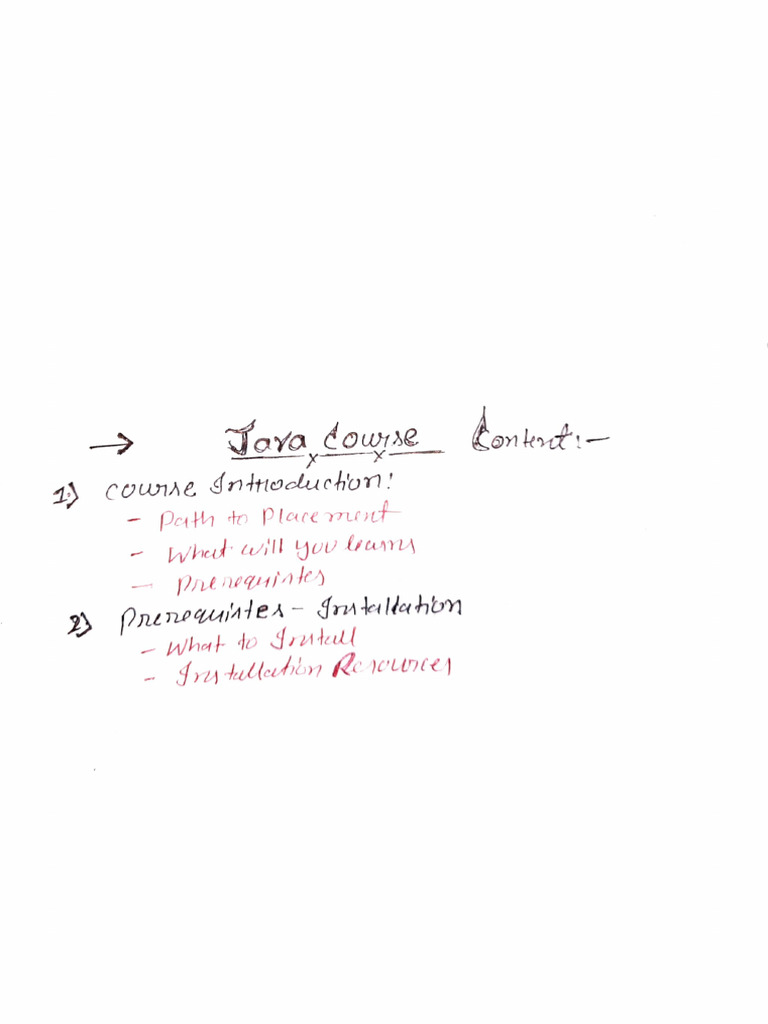 → Java Course Content:-
1) Course Introduction:
- Path to Placement
- What will you learns
- Prerequistes
2) Prerequistes - Installation
- What to Install
- Installation Resources